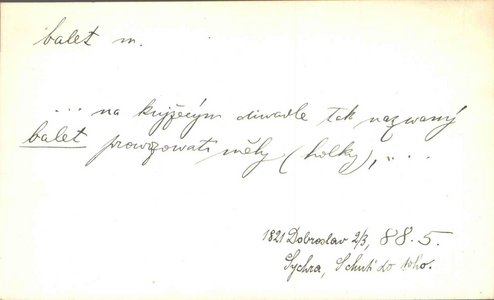 balet m.
... na knížecým diwadle tak nazwaný
balet prowozowati měly (holky), ...
1821 Dobroslav 2/3, 88.5.
Sychra, S chutí do toho.